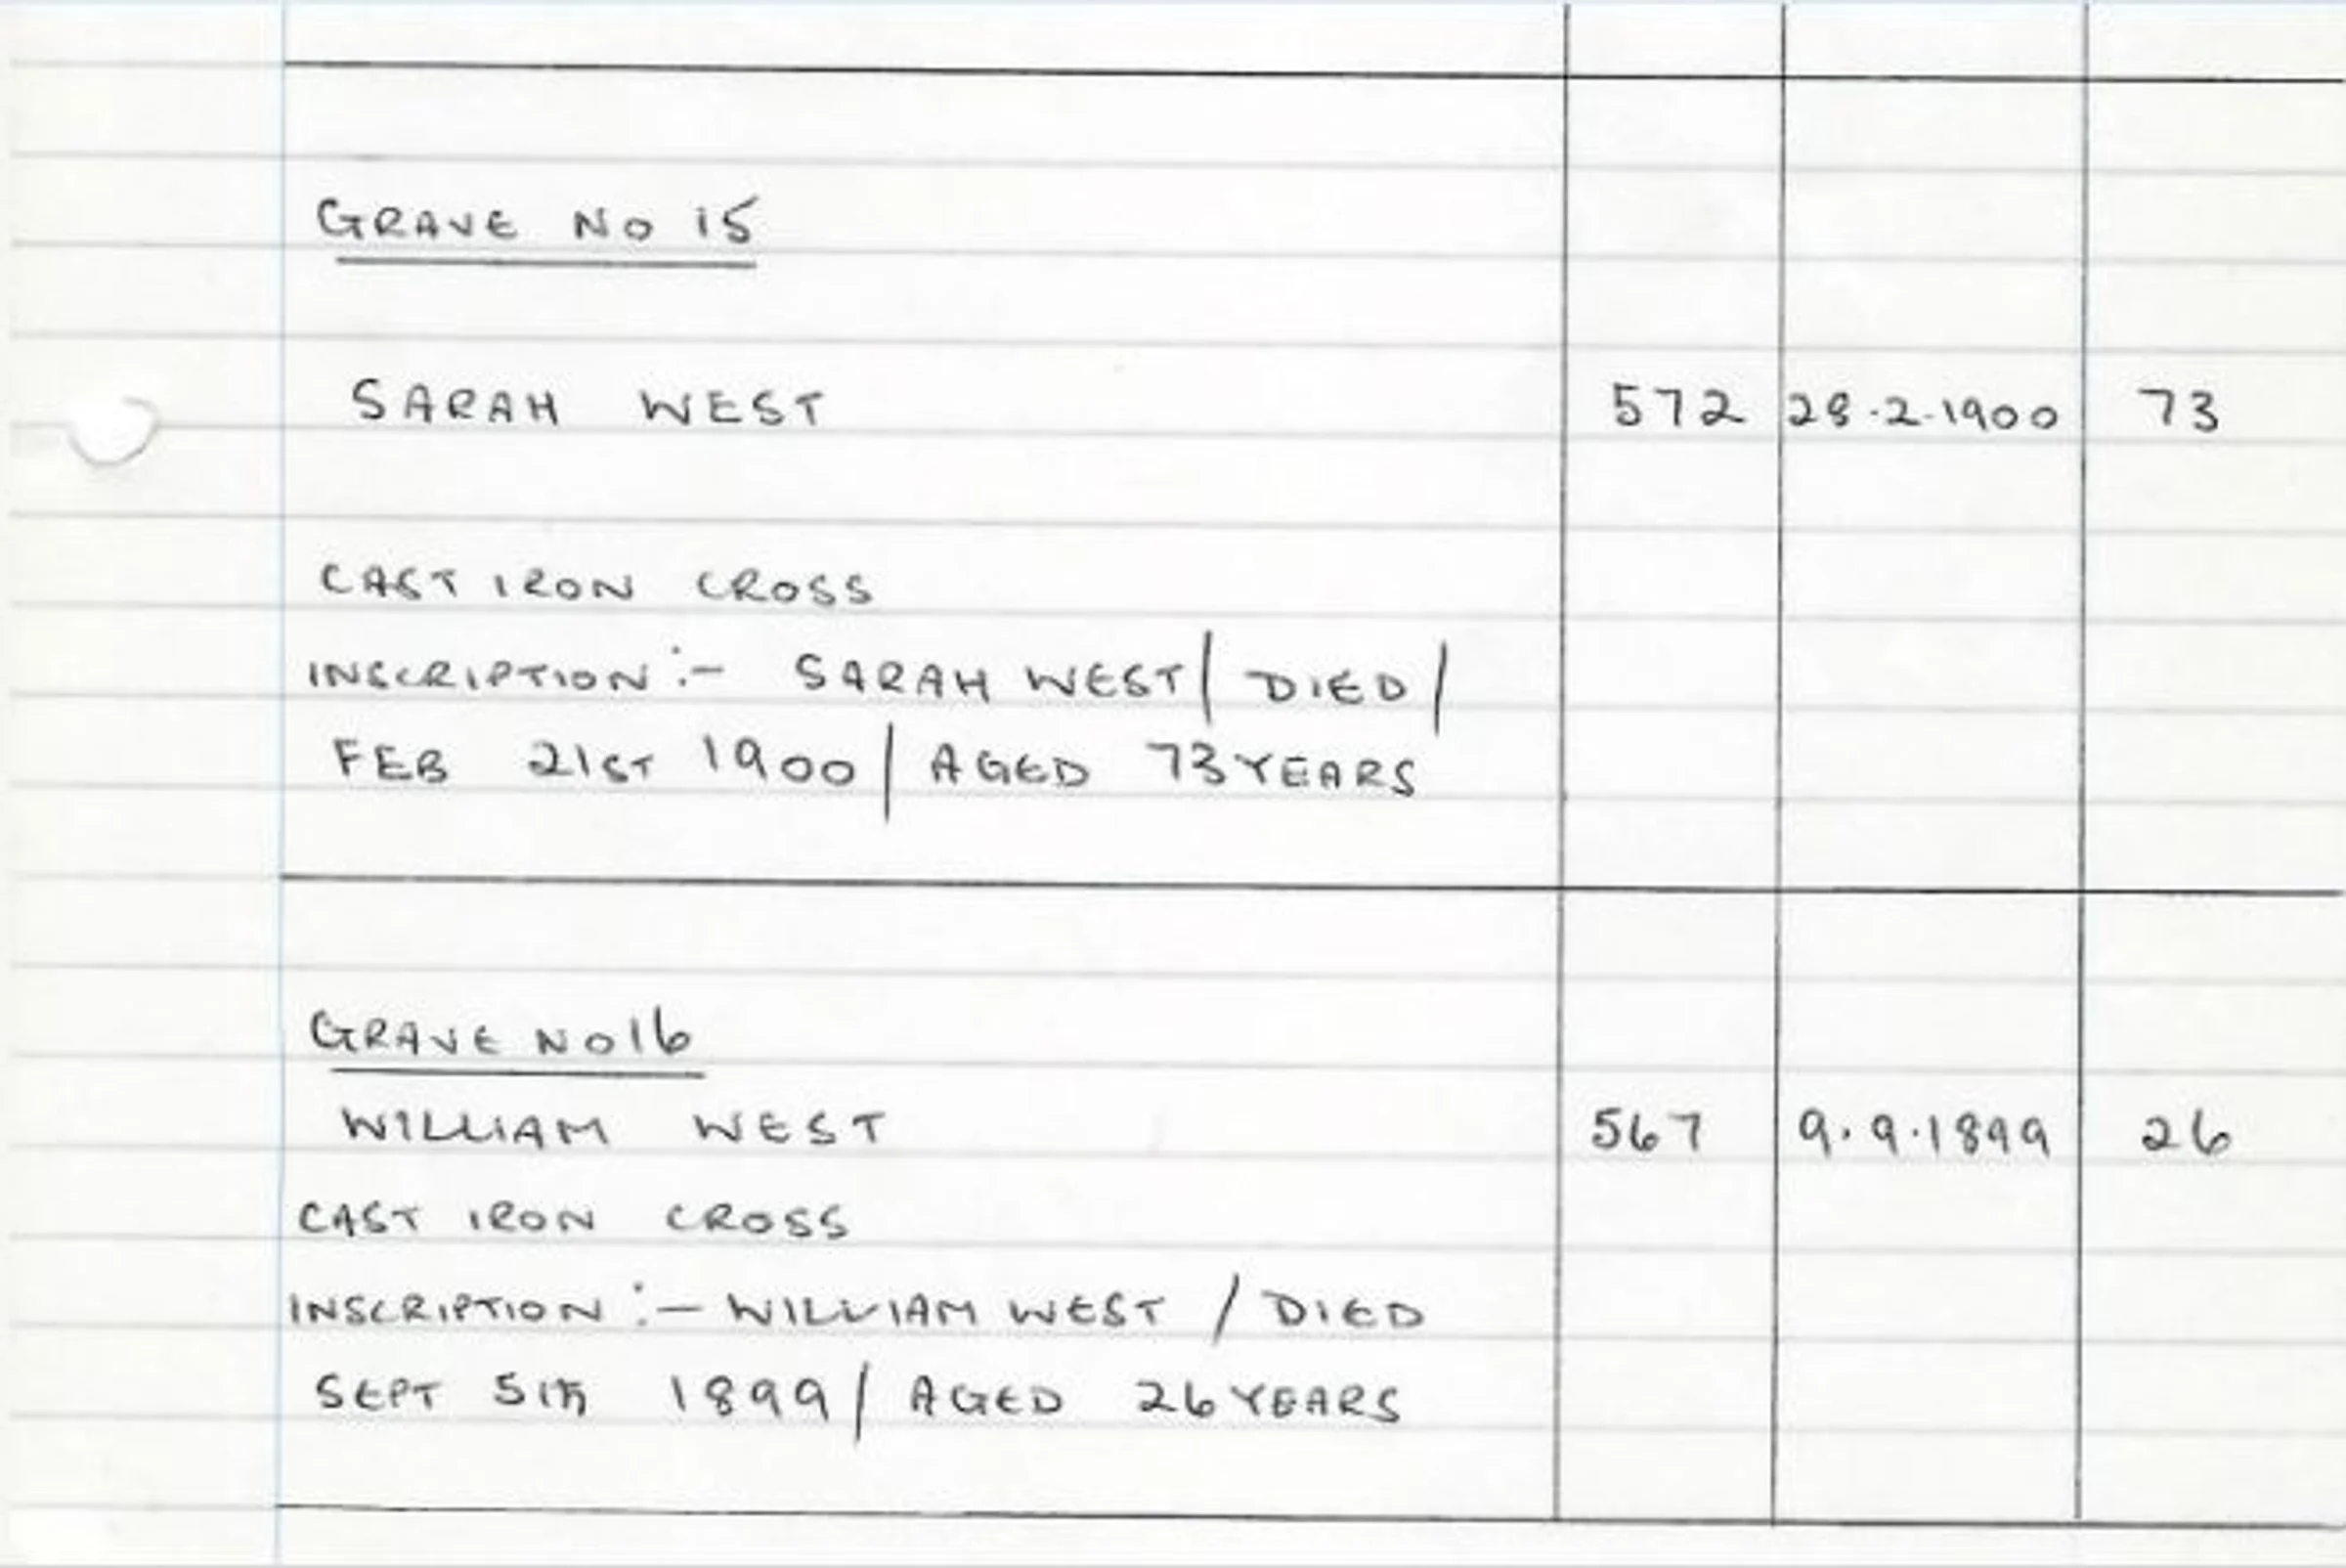 GRAVE No 15
SARAH WEST 572 28.2.1900 73
CAST IRON CROSS
INSCRIPTION :- SARAH WEST / DIED /
FEB 21ST 1900 / AGED 73 YEARS
GRAVE No 16
WILLIAM WEST 567 9.9.1899 26
CAST IRON CROSS
INSCRIPTION :- WILLIAM WEST / DIED
SEPT 5th 1899 / AGED 26 YEARS